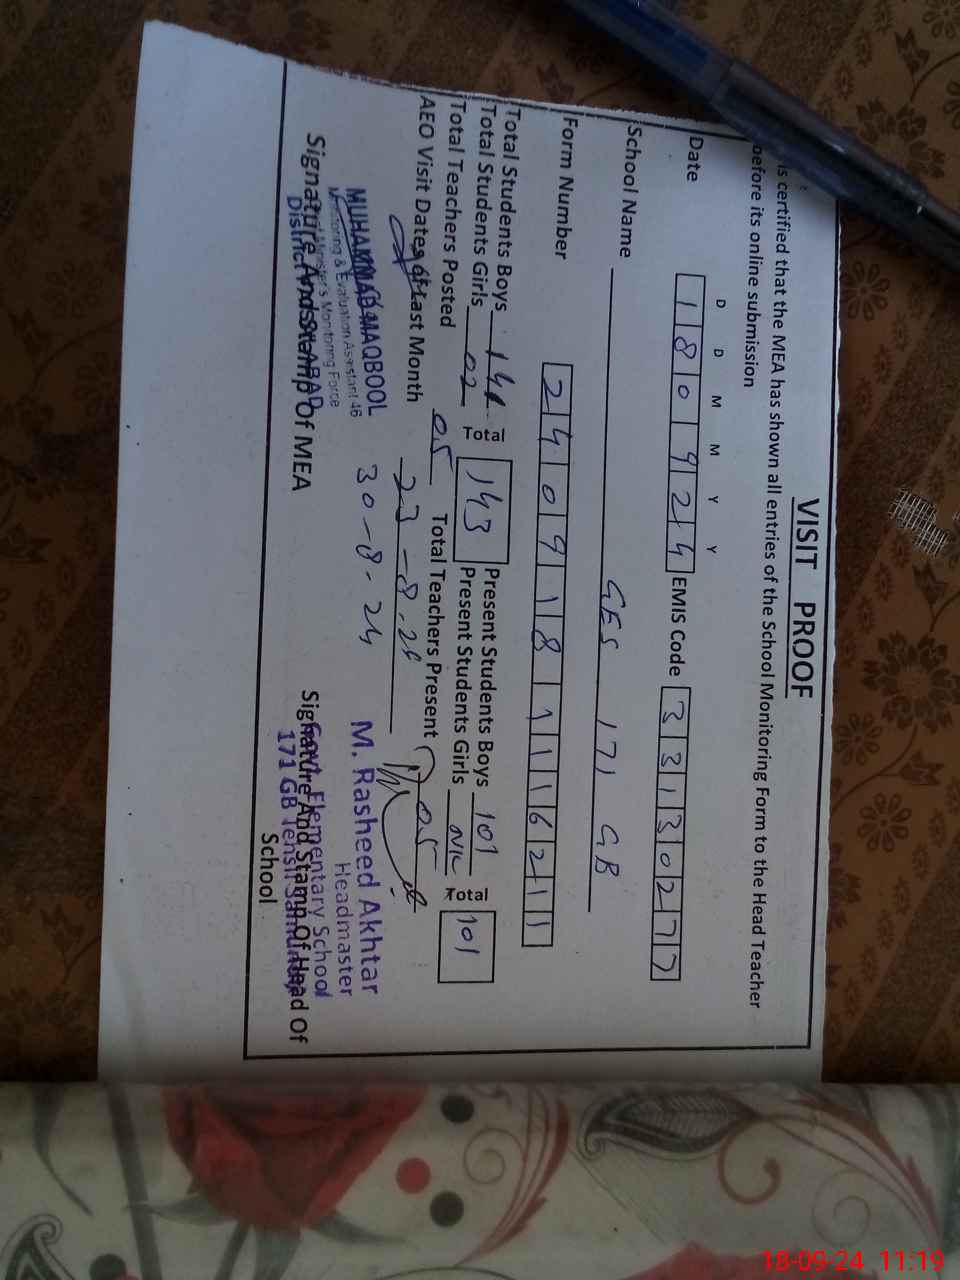 VISIT PROOF
is certified that the MEA has shown all entries of the School Monitoring Form to the Head Teacher
before its online submission
D D M M Y Y
Date 180924 EMIS Code 33130277
School Name GES 171 GB
Form Number 2409181116211
Total Students Boys 141 Total 143 Present Students Boys 101 Total 101
Total Students Girls 02 Present Students Girls NIL
Total Teachers Posted 05 Total Teachers Present 05
AEO Visit Dates of Last Month 23-8-24
30-8-24
MUHAMMAD MAQBOOL
Monitoring & Evaluation Assistant 46
Minister's Monitoring Force
District
Signature And Stamp Of MEA
M. Rasheed Akhtar
Headmaster
Govt. Elementary School
171 GB Tehsil Samundri
Signature And Stamp Of Head Of
School
18-09-24 11:19